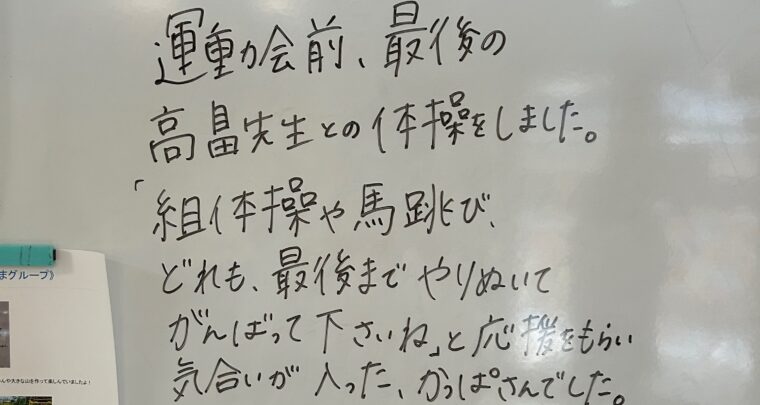 運動会前、最後の
高畠先生との体操をしました。
「組体操や馬跳び、
どれも、最後までやりぬいて
がんばって下さいね」と応援をもらい
気合いが入った、かっぱさんでした。
まグループ》
んや大きな山を作って楽しんでいましたよ!